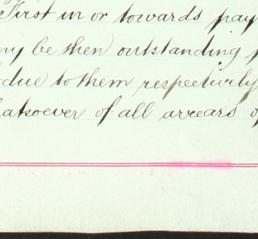 First in or towards pay
ny be then outstanding
due to them respectively
hatsoever of all arrears of